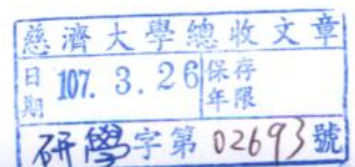 慈濟大學總收文章
日期 107. 3. 26 保存年限
研學字第 02693 號